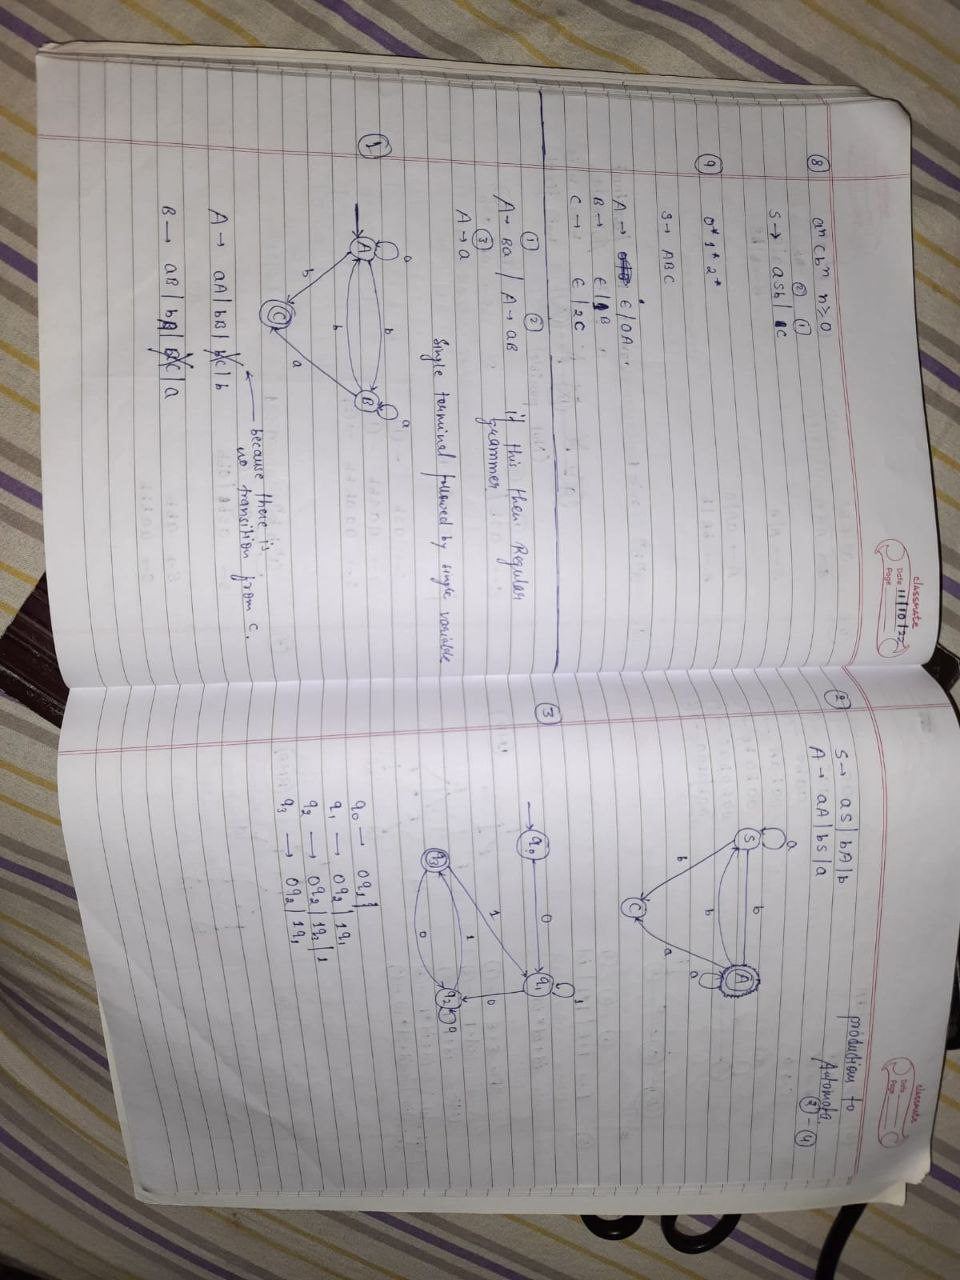 classmate
Date 11/10/22
Page
8 aⁿ c bⁿ n ≥ 0
② ①
S → aSb | C
9 0* 1* 2*
S → ABC
A → ε / 0A
B → ε / 1B
C → ε / 2C
① ②
A → Ba / A → aB if this then Regular
③ grammer
A → a
Single terminal followed by single variable
1
a
b
a
A
B
b
b
a
C
A → aA | bB | bC | b
because there is
no transition from C.
B → aB | bA | aC | a
classmate
Date
Page
production to
Automata.
② - ④
2 S → aS | bA | b
A → aA | bS | a
a
S
b
A
b
a
b
a
C
3
q₀
0
q₁
1
1
0
q₃
1
q₂
0
0
q₀ → 0q₁
q₁ → 0q₂ | 1q₁
q₂ → 0q₂ | 1q₃ | 1
q₃ → 0q₂ | 1q₁